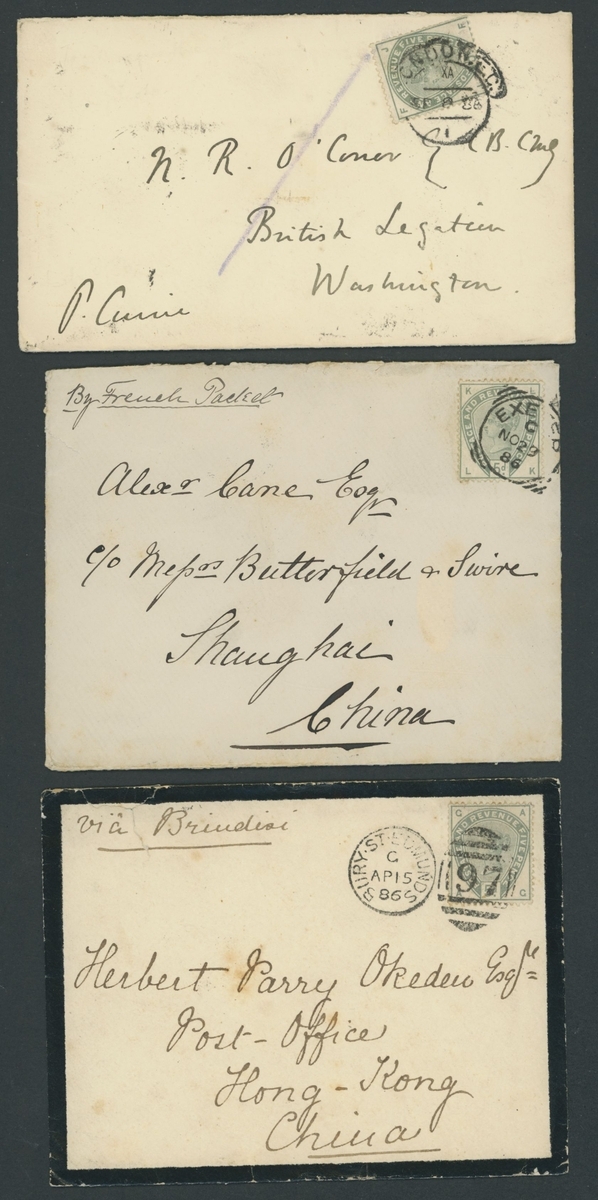 LONDON.E.C
XA
86
1
J
E
F
REVENUE FIVE PENCE
N. R. O'Conor Esq C.B. CMG
British Legation
Washington.
P. Currie
By French Packet
K
L
L
K
POSTAGE AND REVENUE
5d
EXE
C
NO 23
86
Alexr Cane Esqr
c/o Messrs Butterfield & Swire
Shanghai
China
via Brindisi
BURY.ST.EDMUNDS
C
AP 15
86
97
G
A
A
G
AND REVENUE FIVE PE
Herbert Parry Okeden Esqre
Post-Office
Hong-Kong
China